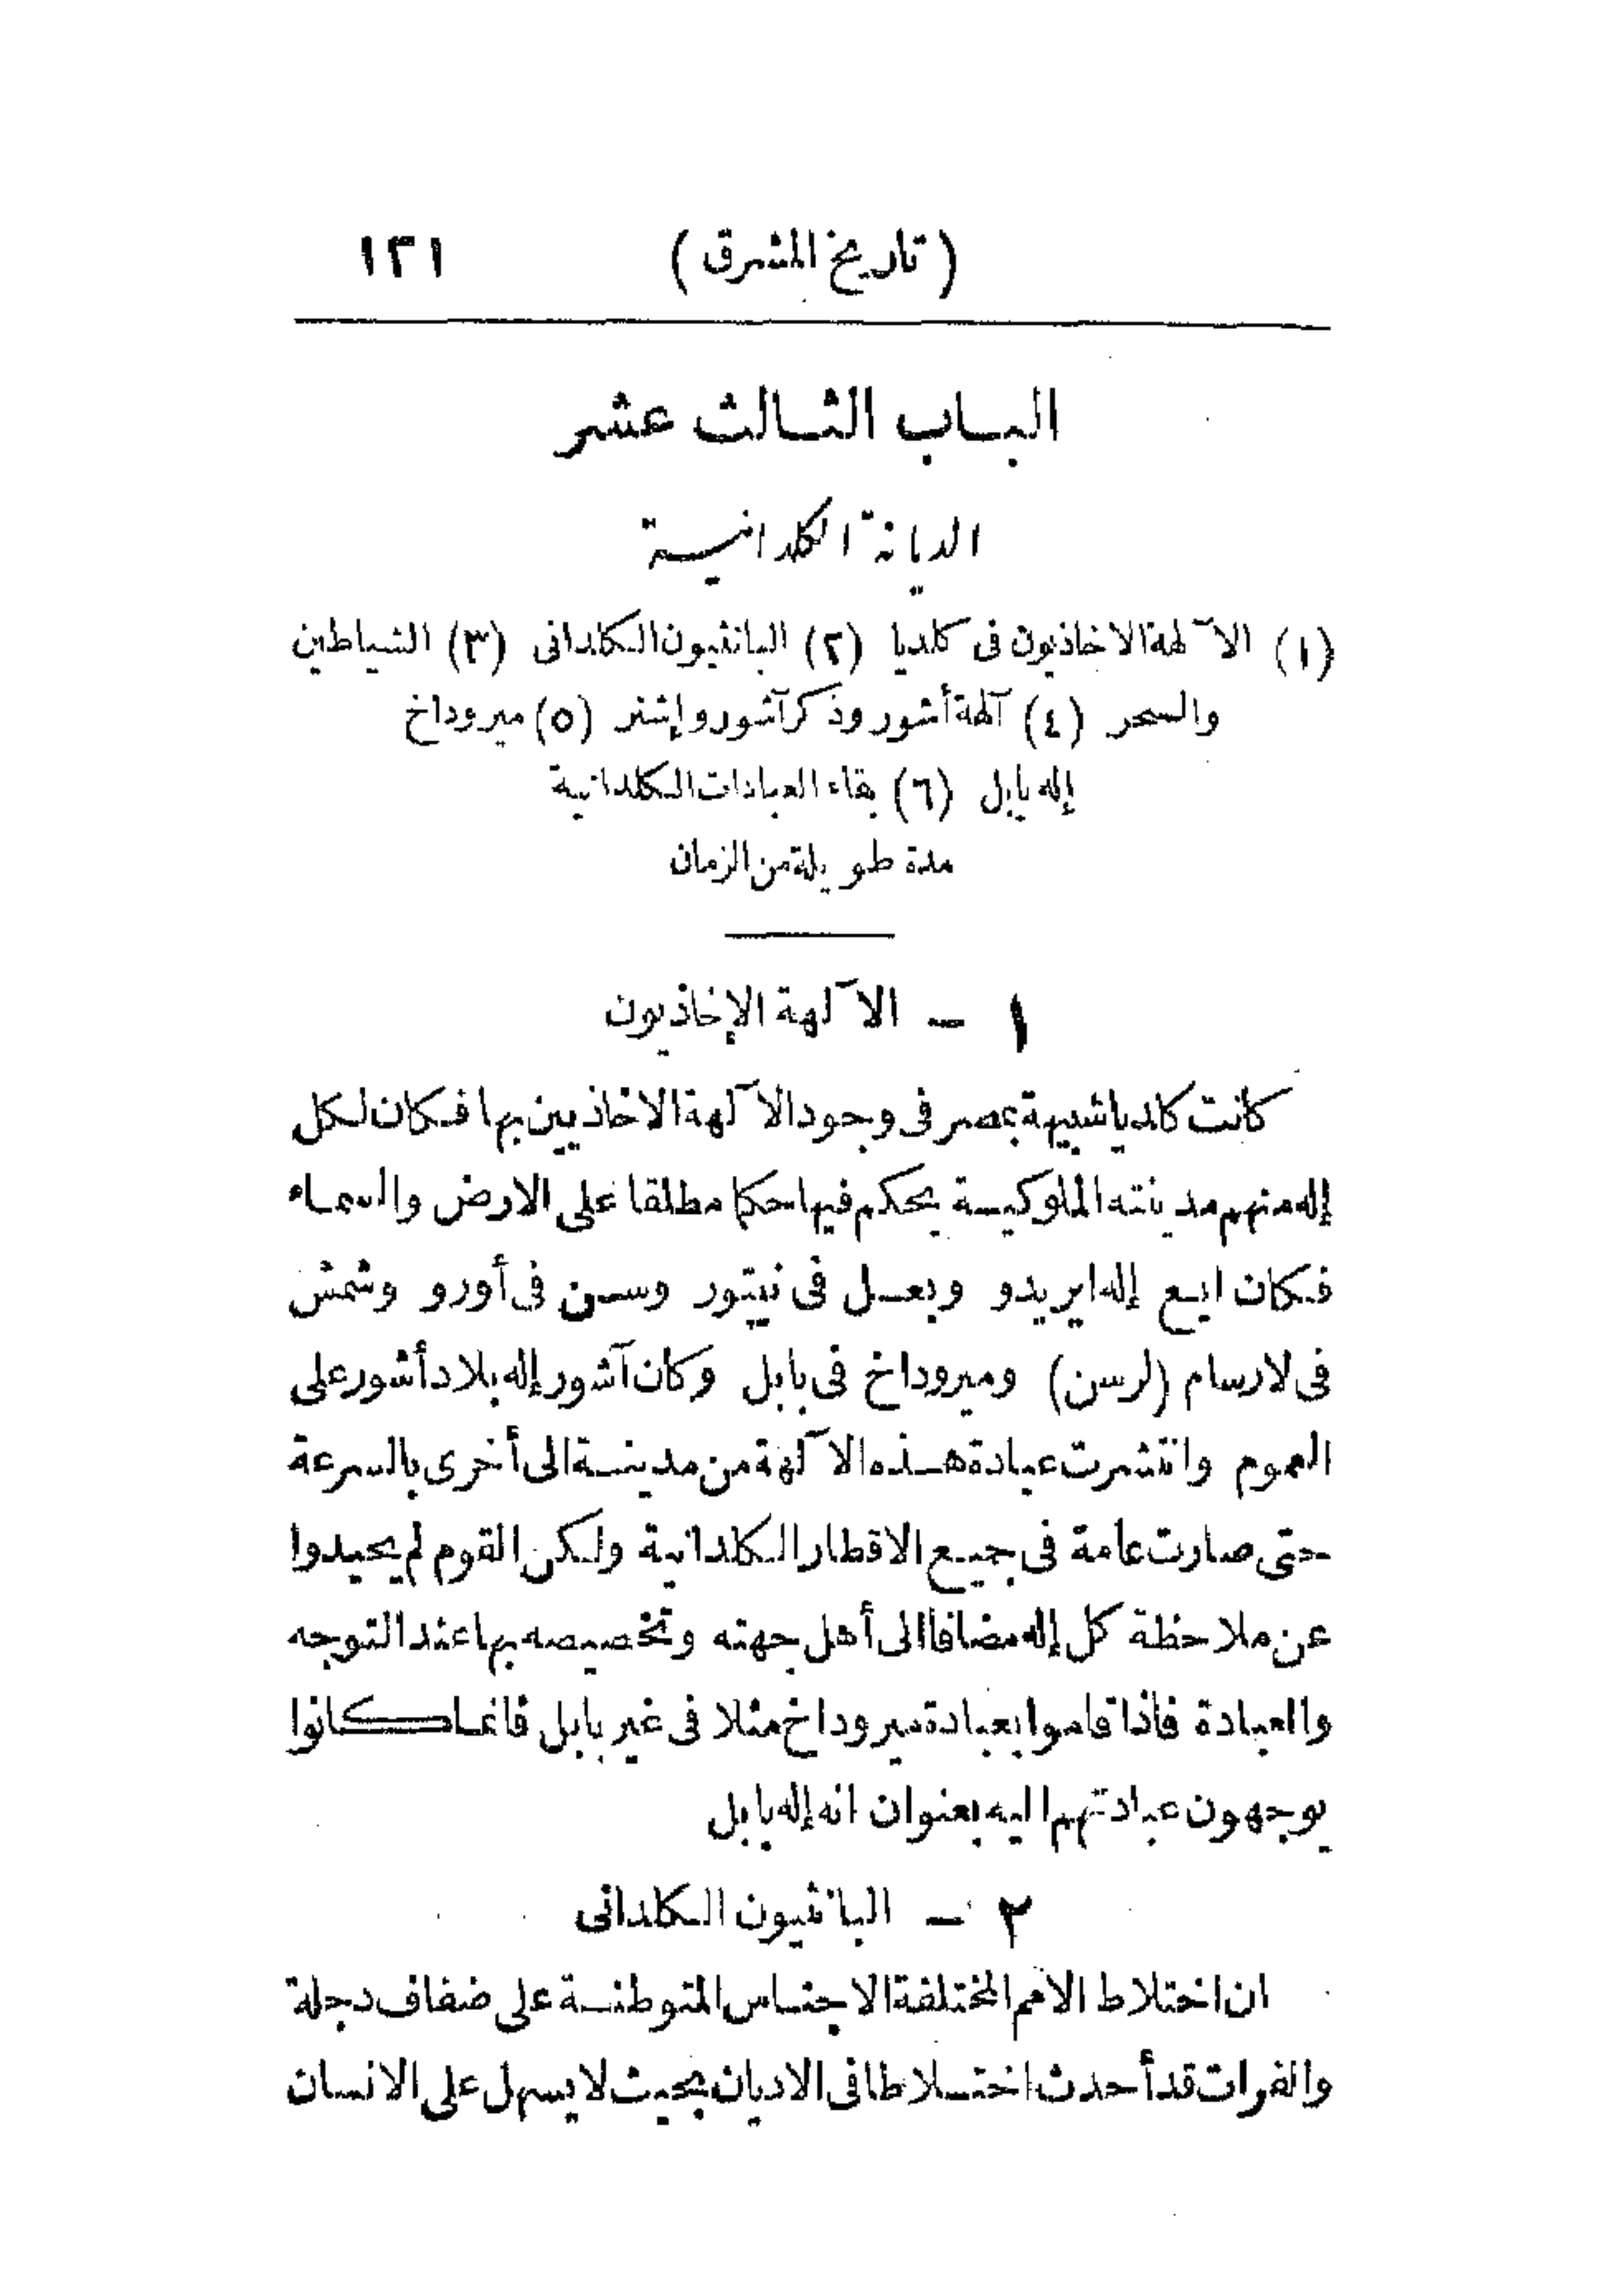 (تاريخ المشرق) ١٣١
الباب الثالث عشر
الديانة الكلدانية
(١) الآلهة الاخاذيون فى كلديا (٢) البانثيون الكلدانى (٣) الشياطين
والسحر (٤) آلهة أشور وذكر آشور وإشتر (٥) ميروداخ
إله بابل (٦) بقاء العبادات الكلدانية
مدة طويلة من الزمان
١ - الآلهة الإخاذيون
كانت كلديا شبيهة بمصر فى وجود الآلهة الاخاذيين بها فكان لكل
إله منهم مدينته الملوكية يحكم فيها حكما مطلقا على الارض والسماء
فكان ايع إله ايريدو وبعل فى نيتور وسن فى أورو وشمش
فى لارسام (لرسن) وميروداخ فى بابل وكان آشور إله بلاد أشور على
العموم وانتشرت عبادة هذه الآلهة من مدينة الى أخرى بالسرعة
حتى صارت عامة فى جميع الاقطار الكلدانية ولكن القوم لم يحيدوا
عن ملاحظة كل إله مضافا الى أهل جهته وتخصيصه بها عند التوجه
والعبادة فاذا قاموا بعبادة ميروداخ مثلا فى غير بابل فانما كانوا
يوجهون عبادتهم اليه بعنوان انه إله بابل
٢ - البانثيون الكلدانى
ان اختلاط الامم المختلفة الاجناس المتوطنة على ضفاف دجلة
والفرات قد أحدث اختلاطا فى الاديان بحيث لا يسهل على الانسان